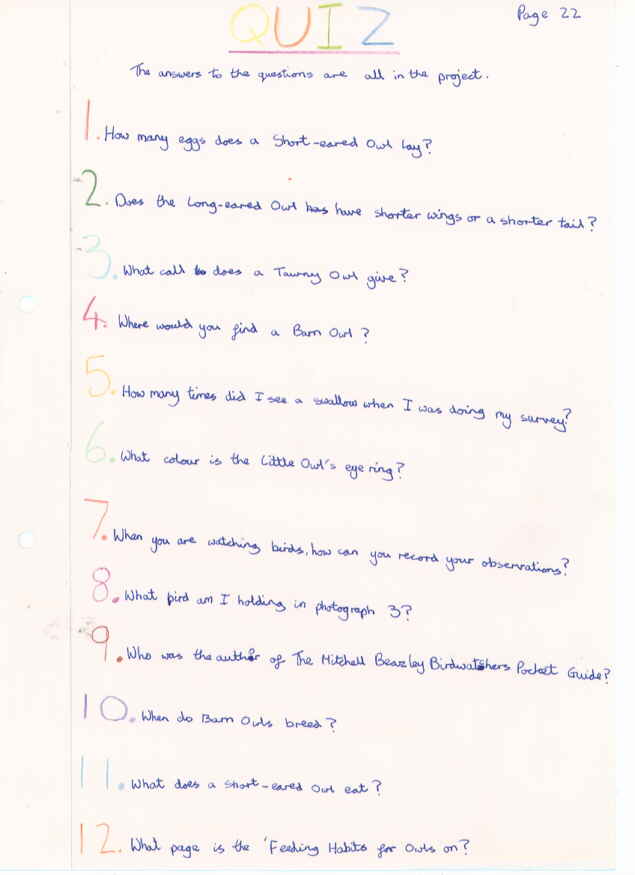 Page 22
QUIZ
The answers to the questions are all in the project.
1. How many eggs does a Short-eared Owl lay?
2. Does the Long-eared Owl has have shorter wings or a shorter tail?
3. What call to does a Tawny Owl give?
4. Where would you find a Barn Owl?
5. How many times did I see a swallow when I was doing my survey?
6. What colour is the Little Owl's eye ring?
7. When you are watching birds, how can you record your observations?
8. What bird am I holding in photograph 3?
9. Who was the author of The Mitchell Beazley Birdwatchers Pocket Guide?
10. When do Barn Owls breed?
11. What does a Short-eared Owl eat?
12. What page is the 'Feeding Habits for Owls on?